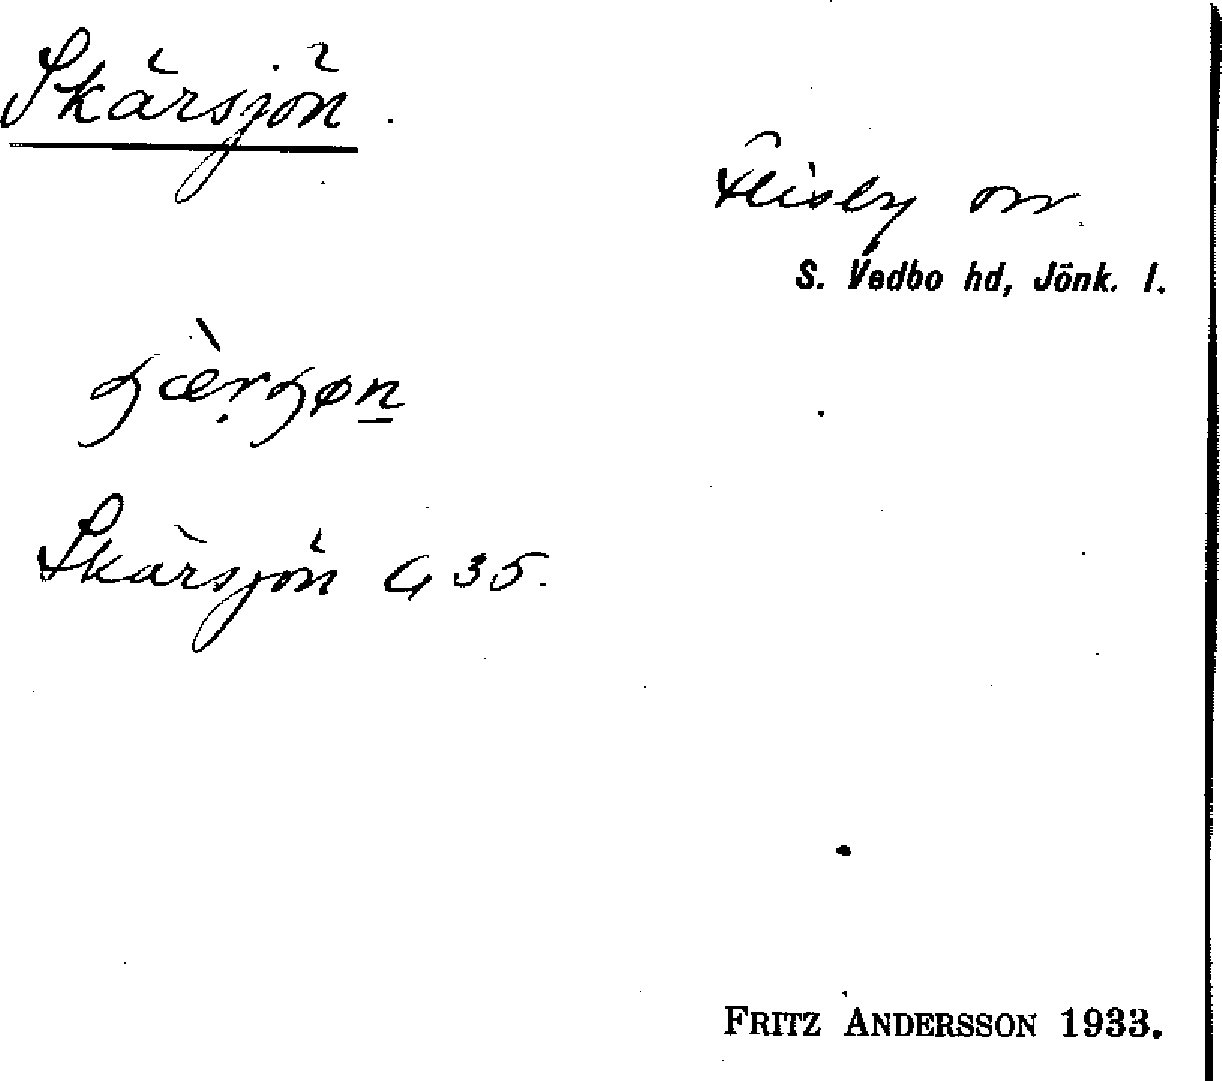 Skärsjön.
Flisby sn
S. Vedbo hd, Jönk. l.
Skärsjön G 35.
FRITZ ANDERSSON 1933.